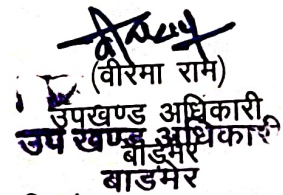 (वीरमा राम)
उपखण्ड अधिकारी
उप खण्ड अधिकारी
बाड़मेर
बाड़मेर